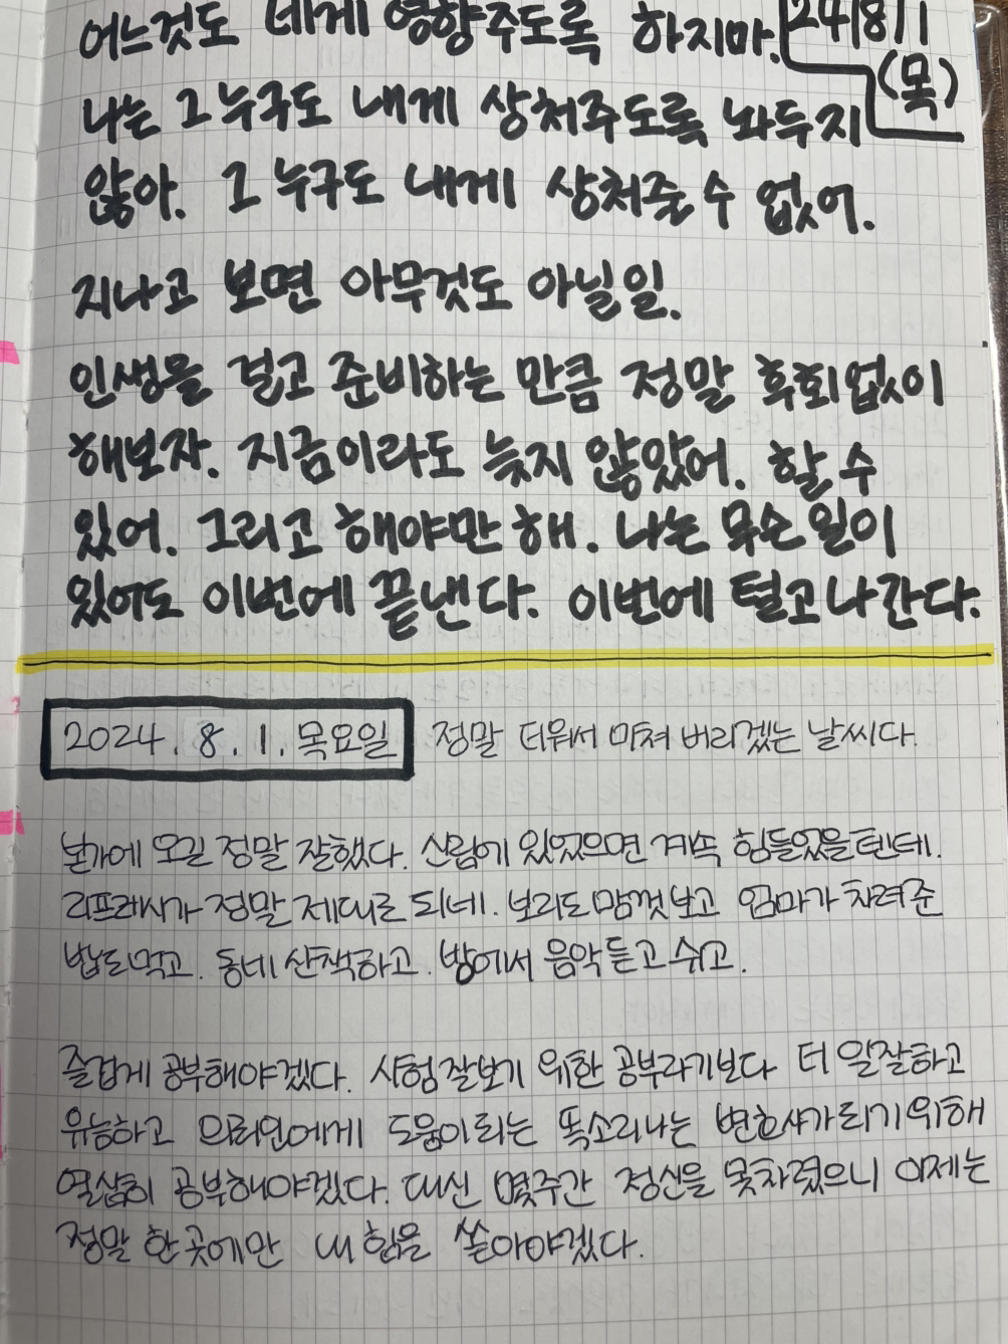 어느것도 네게 영향주도록 하지마. 24/8/1
(목)
나는 그 누구도 내게 상처주도록 놔두지
않아. 그 누구도 내게 상처줄 수 없어.
지나고 보면 아무것도 아닐 일.
인생을 걸고 준비하는 만큼 정말 후회없이
해보자. 지금이라도 늦지 않았어. 할 수
있어. 그리고 해야만 해. 나는 무슨 일이
있어도 이번에 끝낸다. 이번에 털고 나간다.
2024. 8. 1. 목요일 정말 더워서 미쳐 버리겠는 날씨다.
본가에 오길 정말 잘했다. 신림에 있었으면 계속 힘들었을텐데.
리프레시가 정말 제대로 되네. 보리도 맘껏 보고 엄마가 차려준
밥도 먹고. 동네 산책하고. 방에서 음악 듣고 쉬고.
즐겁게 공부해야겠다. 시험 잘보기 위한 공부라기보다 더 일잘하고
유능하고 의뢰인에게 도움이 되는 똑소리나는 변호사가 되기 위해
열심히 공부해야겠다. 대신 몇주간 정신을 못차렸으니 이제는
정말 한 곳에만 내 힘을 쏟아야겠다.